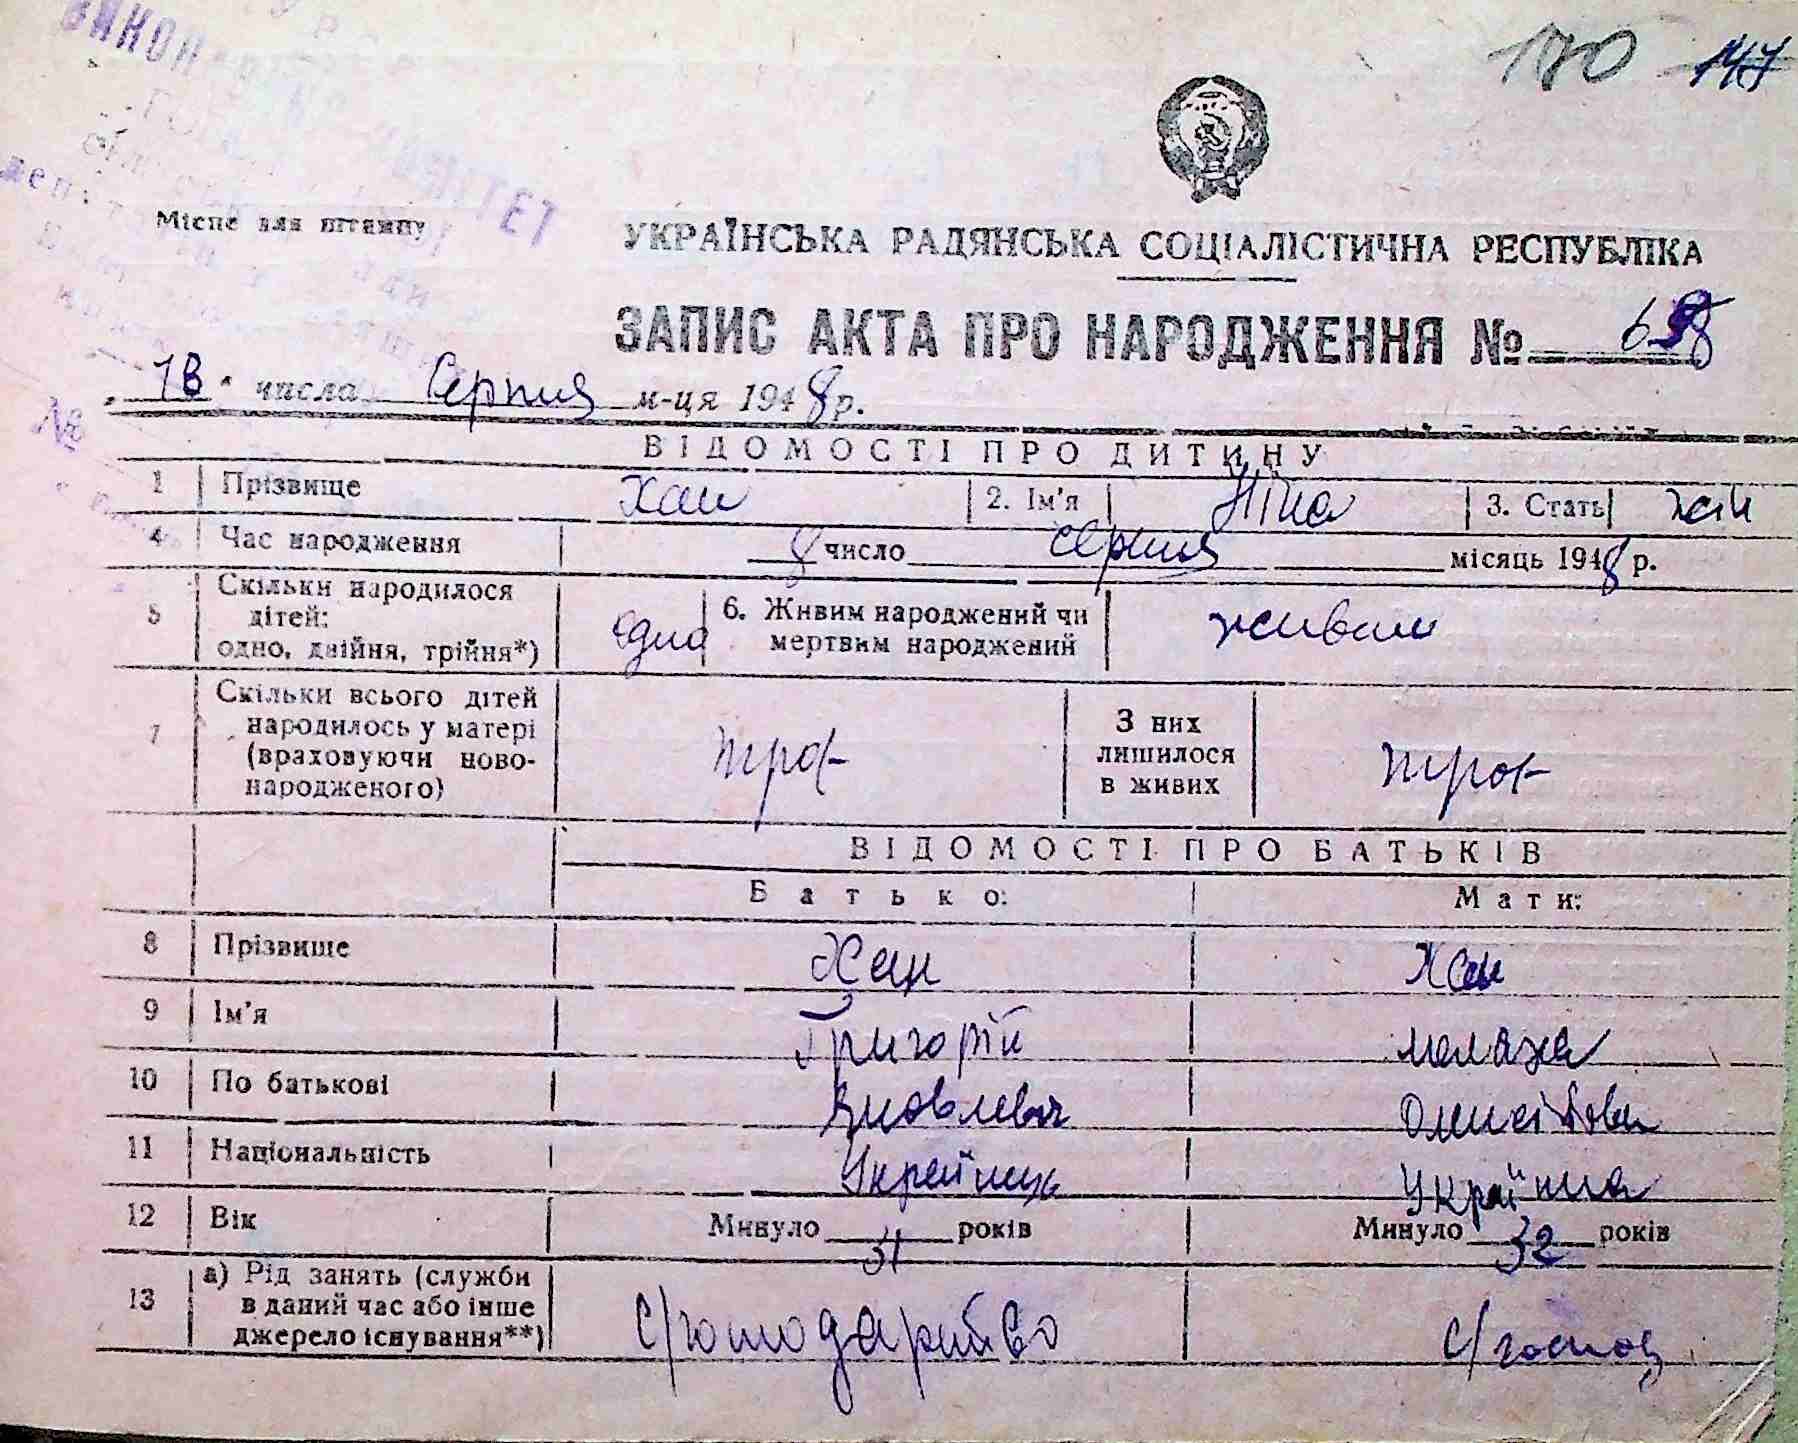 170 147
ВИКОН КОМІТЕТ
Місце для штампу
УКРАЇНСЬКА РАДЯНСЬКА СОЦІАЛІСТИЧНА РЕСПУБЛІКА
ЗАПИС АКТА ПРО НАРОДЖЕННЯ №
„ 18 " числа Серпня м-ця 1948 р.
№
ВІДОМОСТІ ПРО ДИТИНУ
1 Прізвище Хан 2. Ім'я Ніна 3. Стать жін
4 Час народження 8 число серпня місяць 1948 р.
5 Скільки народилося
дітей:
одно, двійня, трійня*) одна 6. Живим народжений чи
мертвим народжений живим
7 Скільки всього дітей
народилось у матері
(враховуючи ново-
народженого) троє
З них
лишилося
в живих троє
ВІДОМОСТІ ПРО БАТЬКІВ
Батько: Мати:
8 Прізвище Хан Хан
9 Ім'я Григорій
10 По батькові Яковлевич
11 Національність Українець Україніка
12 Вік Минуло 31 років Минуло 32 років
13 а) Рід занять (служби
в даний час або інше
джерело існування**) С/господарство с/господ